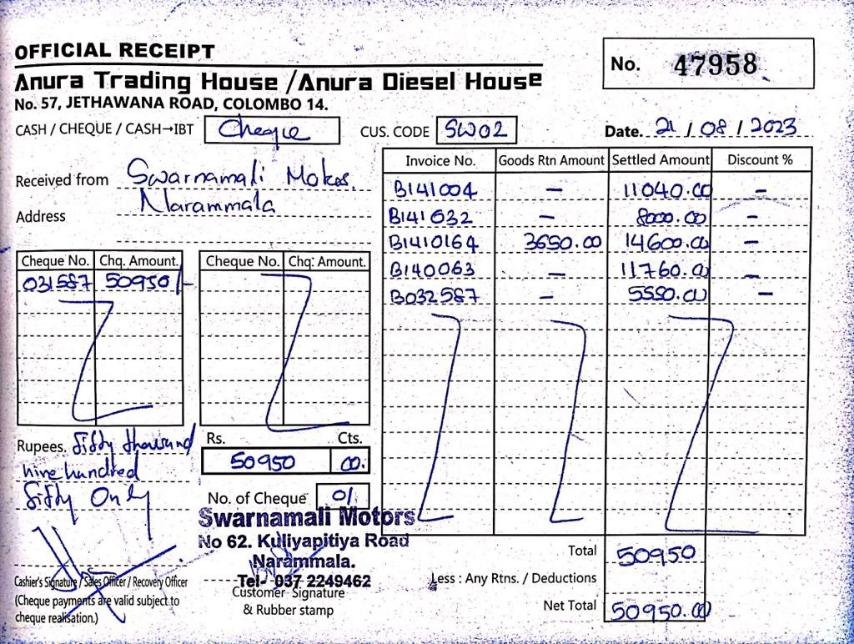 OFFICIAL RECEIPT
No. 47958
Anura Trading House /Anura Diesel House
No. 57, JETHAWANA ROAD, COLOMBO 14.
CASH / CHEQUE / CASH→IBT Cheque CUS. CODE SW02 Date. 21 / 08 / 2023
Received from Swarnamali Mokos.
Address Narammala
Invoice No. Goods Rtn Amount Settled Amount Discount %
B141004 – 11040.00 –
B141032 – 8000.00 –
B1410164 3650.00 14600.00 –
B140063 – 11760.00 –
B032587 – 5550.00 –
Cheque No. Chq. Amount. Cheque No. Chq. Amount.
031587 50950/-
Rupees. fifty thousand
nine hundred
fifty Only
Rs. Cts.
50950 00.
No. of Cheque 01
Swarnamali Motors
No 62. Kuliyapitiya Road
Narammala.
Tel- 037 2249462
Cashier's Signature / Sales Officer / Recovery Officer
(Cheque payments are valid subject to
cheque realisation.)
Customer Signature
& Rubber stamp
Total 50950
Less : Any Rtns. / Deductions
Net Total 50950.00